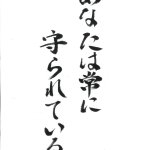 あなたは常に
守られている